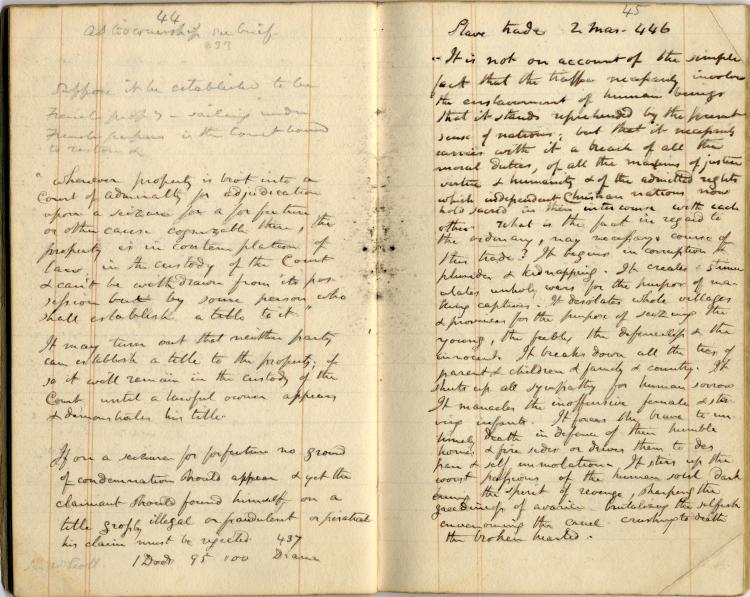 44
as to ownership see brief
233
Suppose it be established to be
French prop'y - sailing under
French papers is the Court bound
to restore &
"Whenever property is brot into a
Court of admiralty for adjudication
upon a seizure for a forfeiture
or other cause cognizable there, the
property is in contemplation of
law in the custody of the Court
& can't be withdrawn from its pos-
session but by some person who
shall establish a title to it"
It may turn out that neither party
can establish a title to the property; if
so it will remain in the custody of the
Court until a lawful owner appears
& demonstrates his title.
If on a seizure for forfeiture no ground
of condemnation should appear & yet the
claimant should found himself on a
title grossly illegal or fraudulent or piratical
his claim must be rejected 437
1 Dods 95 100 Diana
Sir W Scott
45
Slave trade 2 Mas. 446
"It is not on account of the simple
fact that the traffic necessarily involves
the enslavement of human beings
that it stands reprehended by the present
sense of nations; but that it necessarily
carries with it a breach of all the
moral duties, of all the maxims of justice
virtue & humanity & of the admitted rights
which independent Christian nations now
hold sacred in their intercourse with each
other. What is the fact in regard to
the ordinary, nay necessary course of
this trade? It begins in corruption &
plunder & kidnapping. It creates & stimu
lates unholy wars for the purpose of ma-
king captives. It desolates whole villages
& provinces for the purpose of seizing the
young, the feeble, the defenceless & the
innocent. It breaks down all the ties of
parent & children & family & country. It
shuts up all sympathy for human sorrow
It manacles the inoffensive female & star
ving infants. It forces the brave to un-
timely death in defence of their humble
homes & fire sides or drives them to des
pair & self immolation. It stirs up the
worst passions of the human soul dark
ening the spirit of revenge, sharpening the
greediness of avarice brutalizing the selfish
envenoming the cruel crushing to death
the broken hearted.